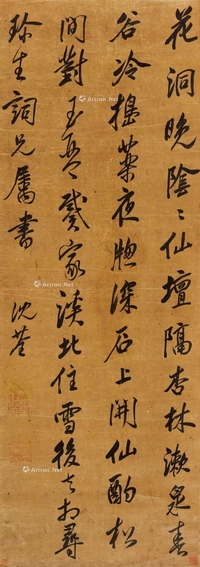 花洞晚陰〻仙壇隔杏林漱泉春
谷冷搗藥夜牕深石上開仙酌松
間對玉琴戴家溪北住雪後去相尋
珍生詞兄屬書
沈荃